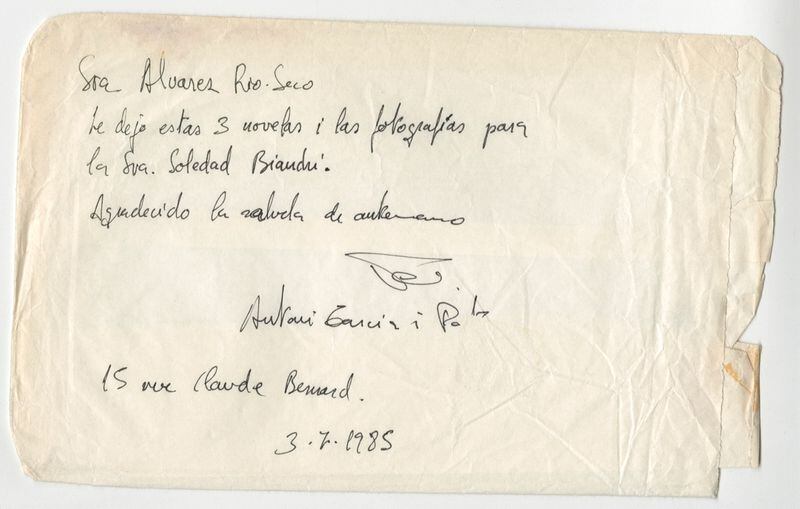 Sra Alvarez Rio-Seco
Le dejo estas 3 novelas i las fotografías para
la Sra. Soledad Biandri.
Agradecido la saluda de antemano
Antoni Garcia i
15 rue Claude Bernard.
3.7.1985